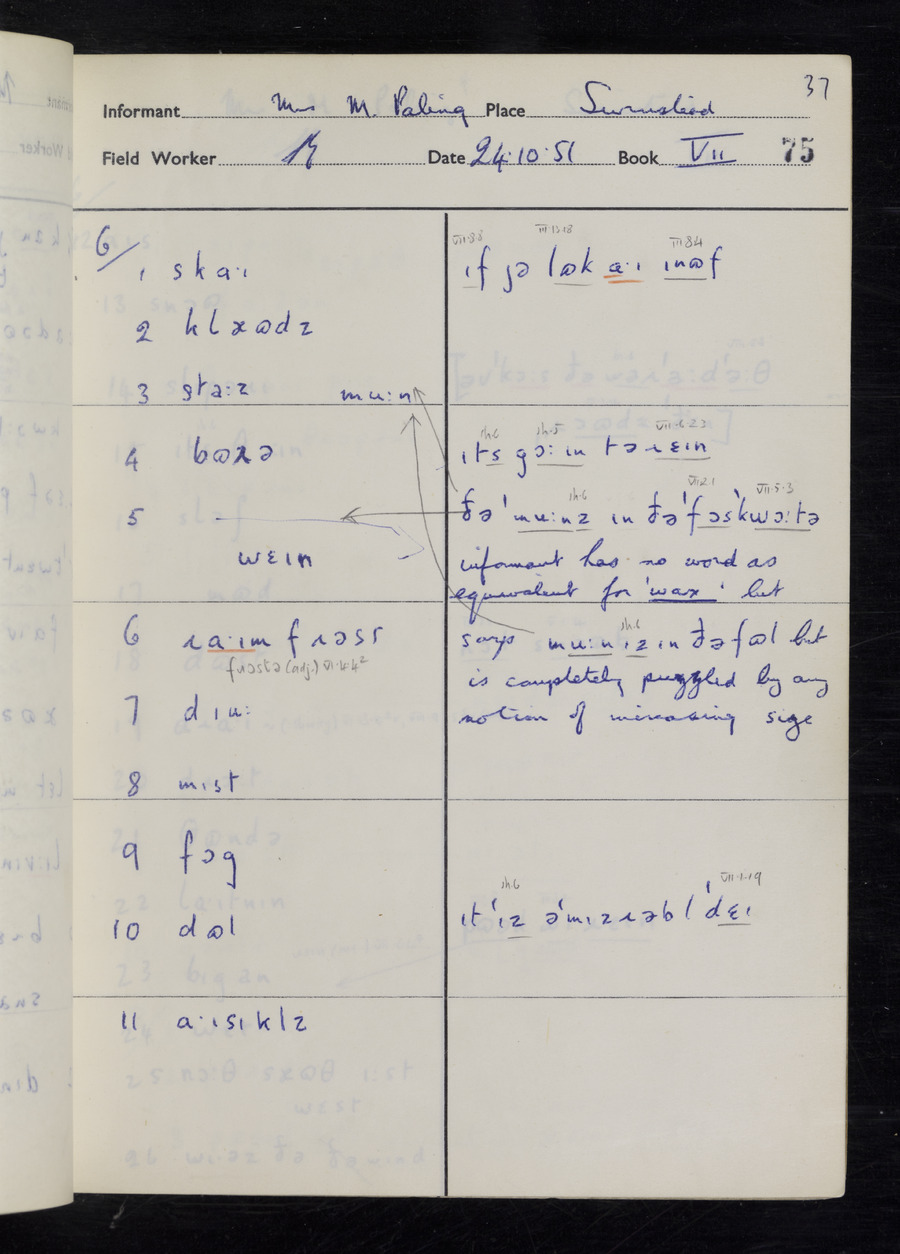 37
Informant Mrs M. Paling Place Swinstead
Field Worker Date 24.10.51 Book VII 75
6/
1 ska·ɪ
2 klaʊdz
3 sta:z mu:n
4 bɒðə
5
wɛɪn
6 ɹa·ɪm fɹɔst
fɹɔstɪ (adj.) VI.4.4²
7 dɪu:
8 mɪst
9 fɔg
10 dʊl
11 a·ɪsɪklz
VII.8.8 III.13.18 III 8 4
ɪf jə lʊk a·ɪ ɪnʊf
sh.6 sh.5 VII.6.23
ɪts gɔ:ɪn tə ɹɛɪn
sh.6 VII.2.1 VII.5.3
ðə ˈmu:nz ɪn ðə ˈfəsˈkwɔ:tə
informant has no word as
equivalent for 'wax' but
sh.6
says mu:n ɪz ɪn ðə fʊl but
is completely puzzled by any
notion of increasing size
sh.6 VII.1.19
ɪt ˈɪz ə ˈmɪzɹəbl ˈdɛɪ